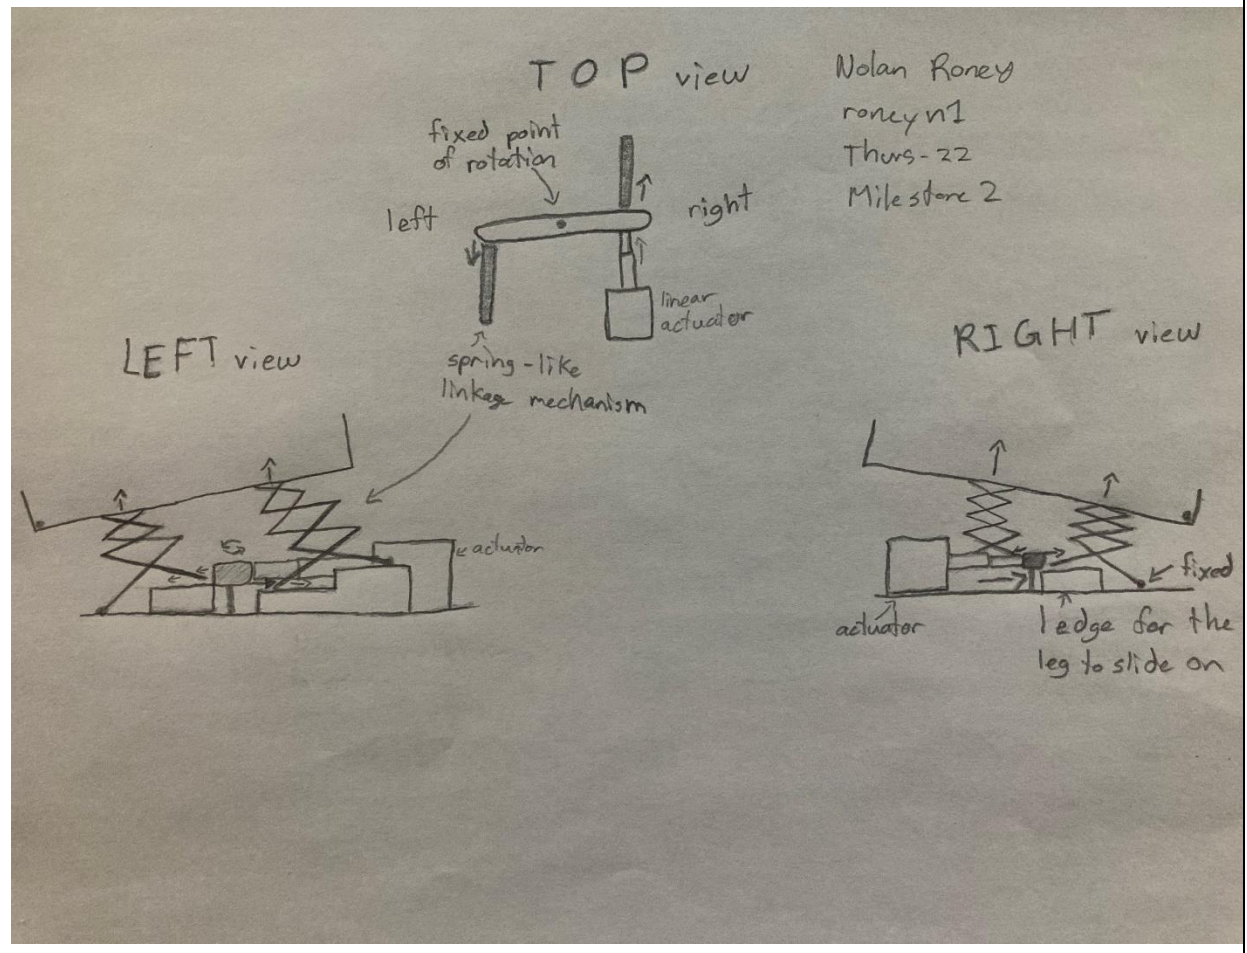 TOP view
Nolan Roney
roneyn1
Thurs-22
Milestone 2
fixed point
of rotation
left
right
linear
actuator
spring-like
linkage mechanism
LEFT view
actuator
RIGHT view
fixed
actuator
ledge for the
leg to slide on